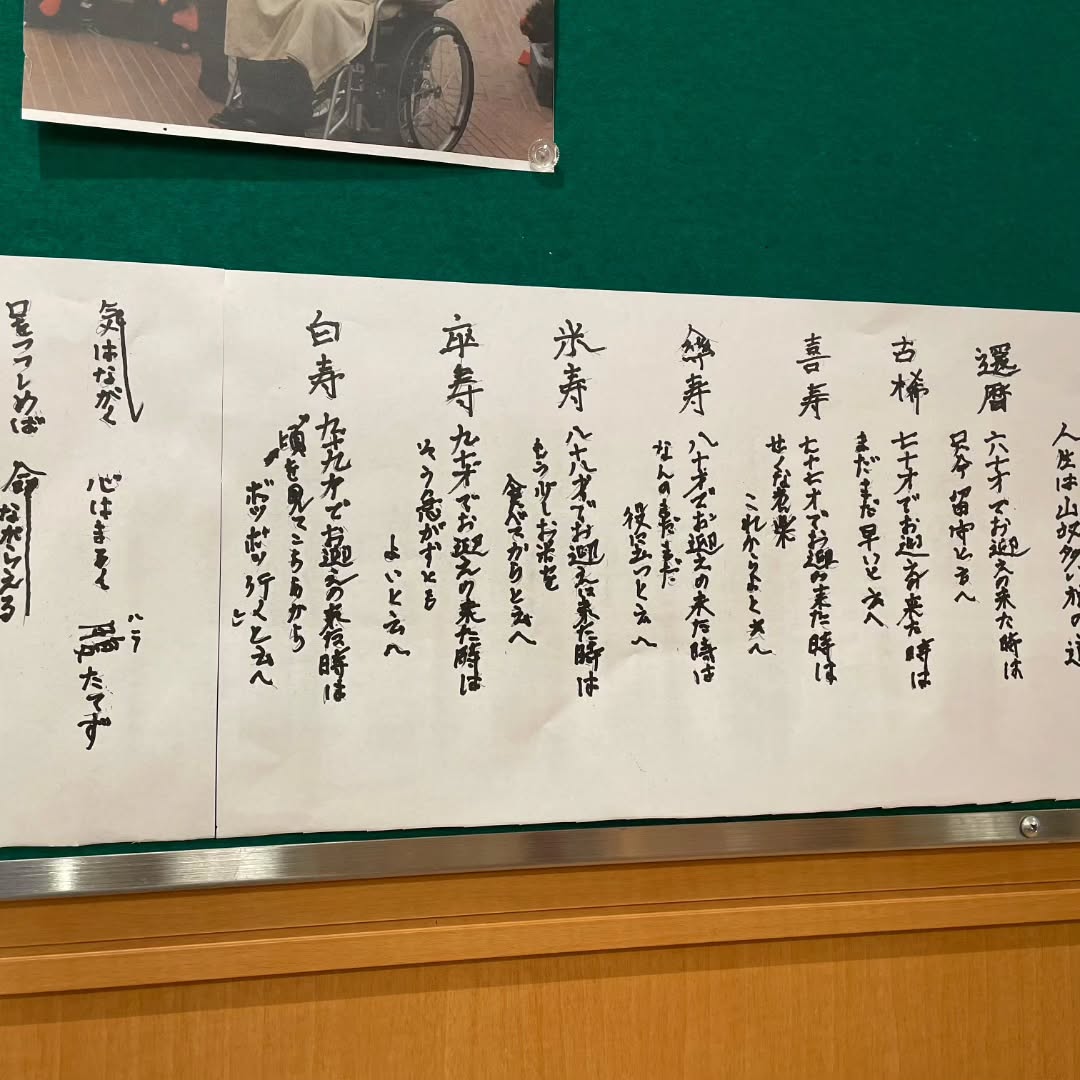 人生は山坂多い旅の道
還暦
六十才でお迎えの来た時は
只今留守と云へ
古稀
七十才でお迎えの来た時は
まだまだ早いと云へ
喜寿
七十七才でお迎の来た時は
せくな老楽
これからよと云へ
傘寿
八十才でお迎えの来た時は
なんのまだまだ
役に立つと云へ
米寿
八十八才でお迎えは来た時は
もう少しお米を
食べてからと云へ
卒寿
九十才でお迎えの来た時は
そう急がずとも
よいと云へ
白寿
九十九才でお迎えの来た時は
頃を見てこちらから
ボツボツ行くと云へ
気はながく 心はまるく
ハラ
たてず
口をつつしめば 命
ながらえる